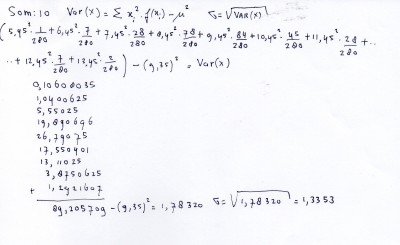 Som: 10 Var(x) = Σ xᵢ² · f(xᵢ) - μ² σ = √VAR(X)
(5,45² · 1/280 + 6,45² · 7/280 + 7,45² · 28/280 + 8,45² · 78/280 + 9,45² · 84/280 + 10,45² · 45/280 + 11,45² · 28/280 + ..
.. + 12,45² · 7/280 + 13,45² · 2/280) - (9,35)² = Var(x)
0,10608035
1,0400625
5,55025
19,890696
26,79075
17,550401
13,11025
3,8750625
+ 1,2921607
89,205709 - (9,35)² = 1,78320 σ = √1,78320 = 1,3353